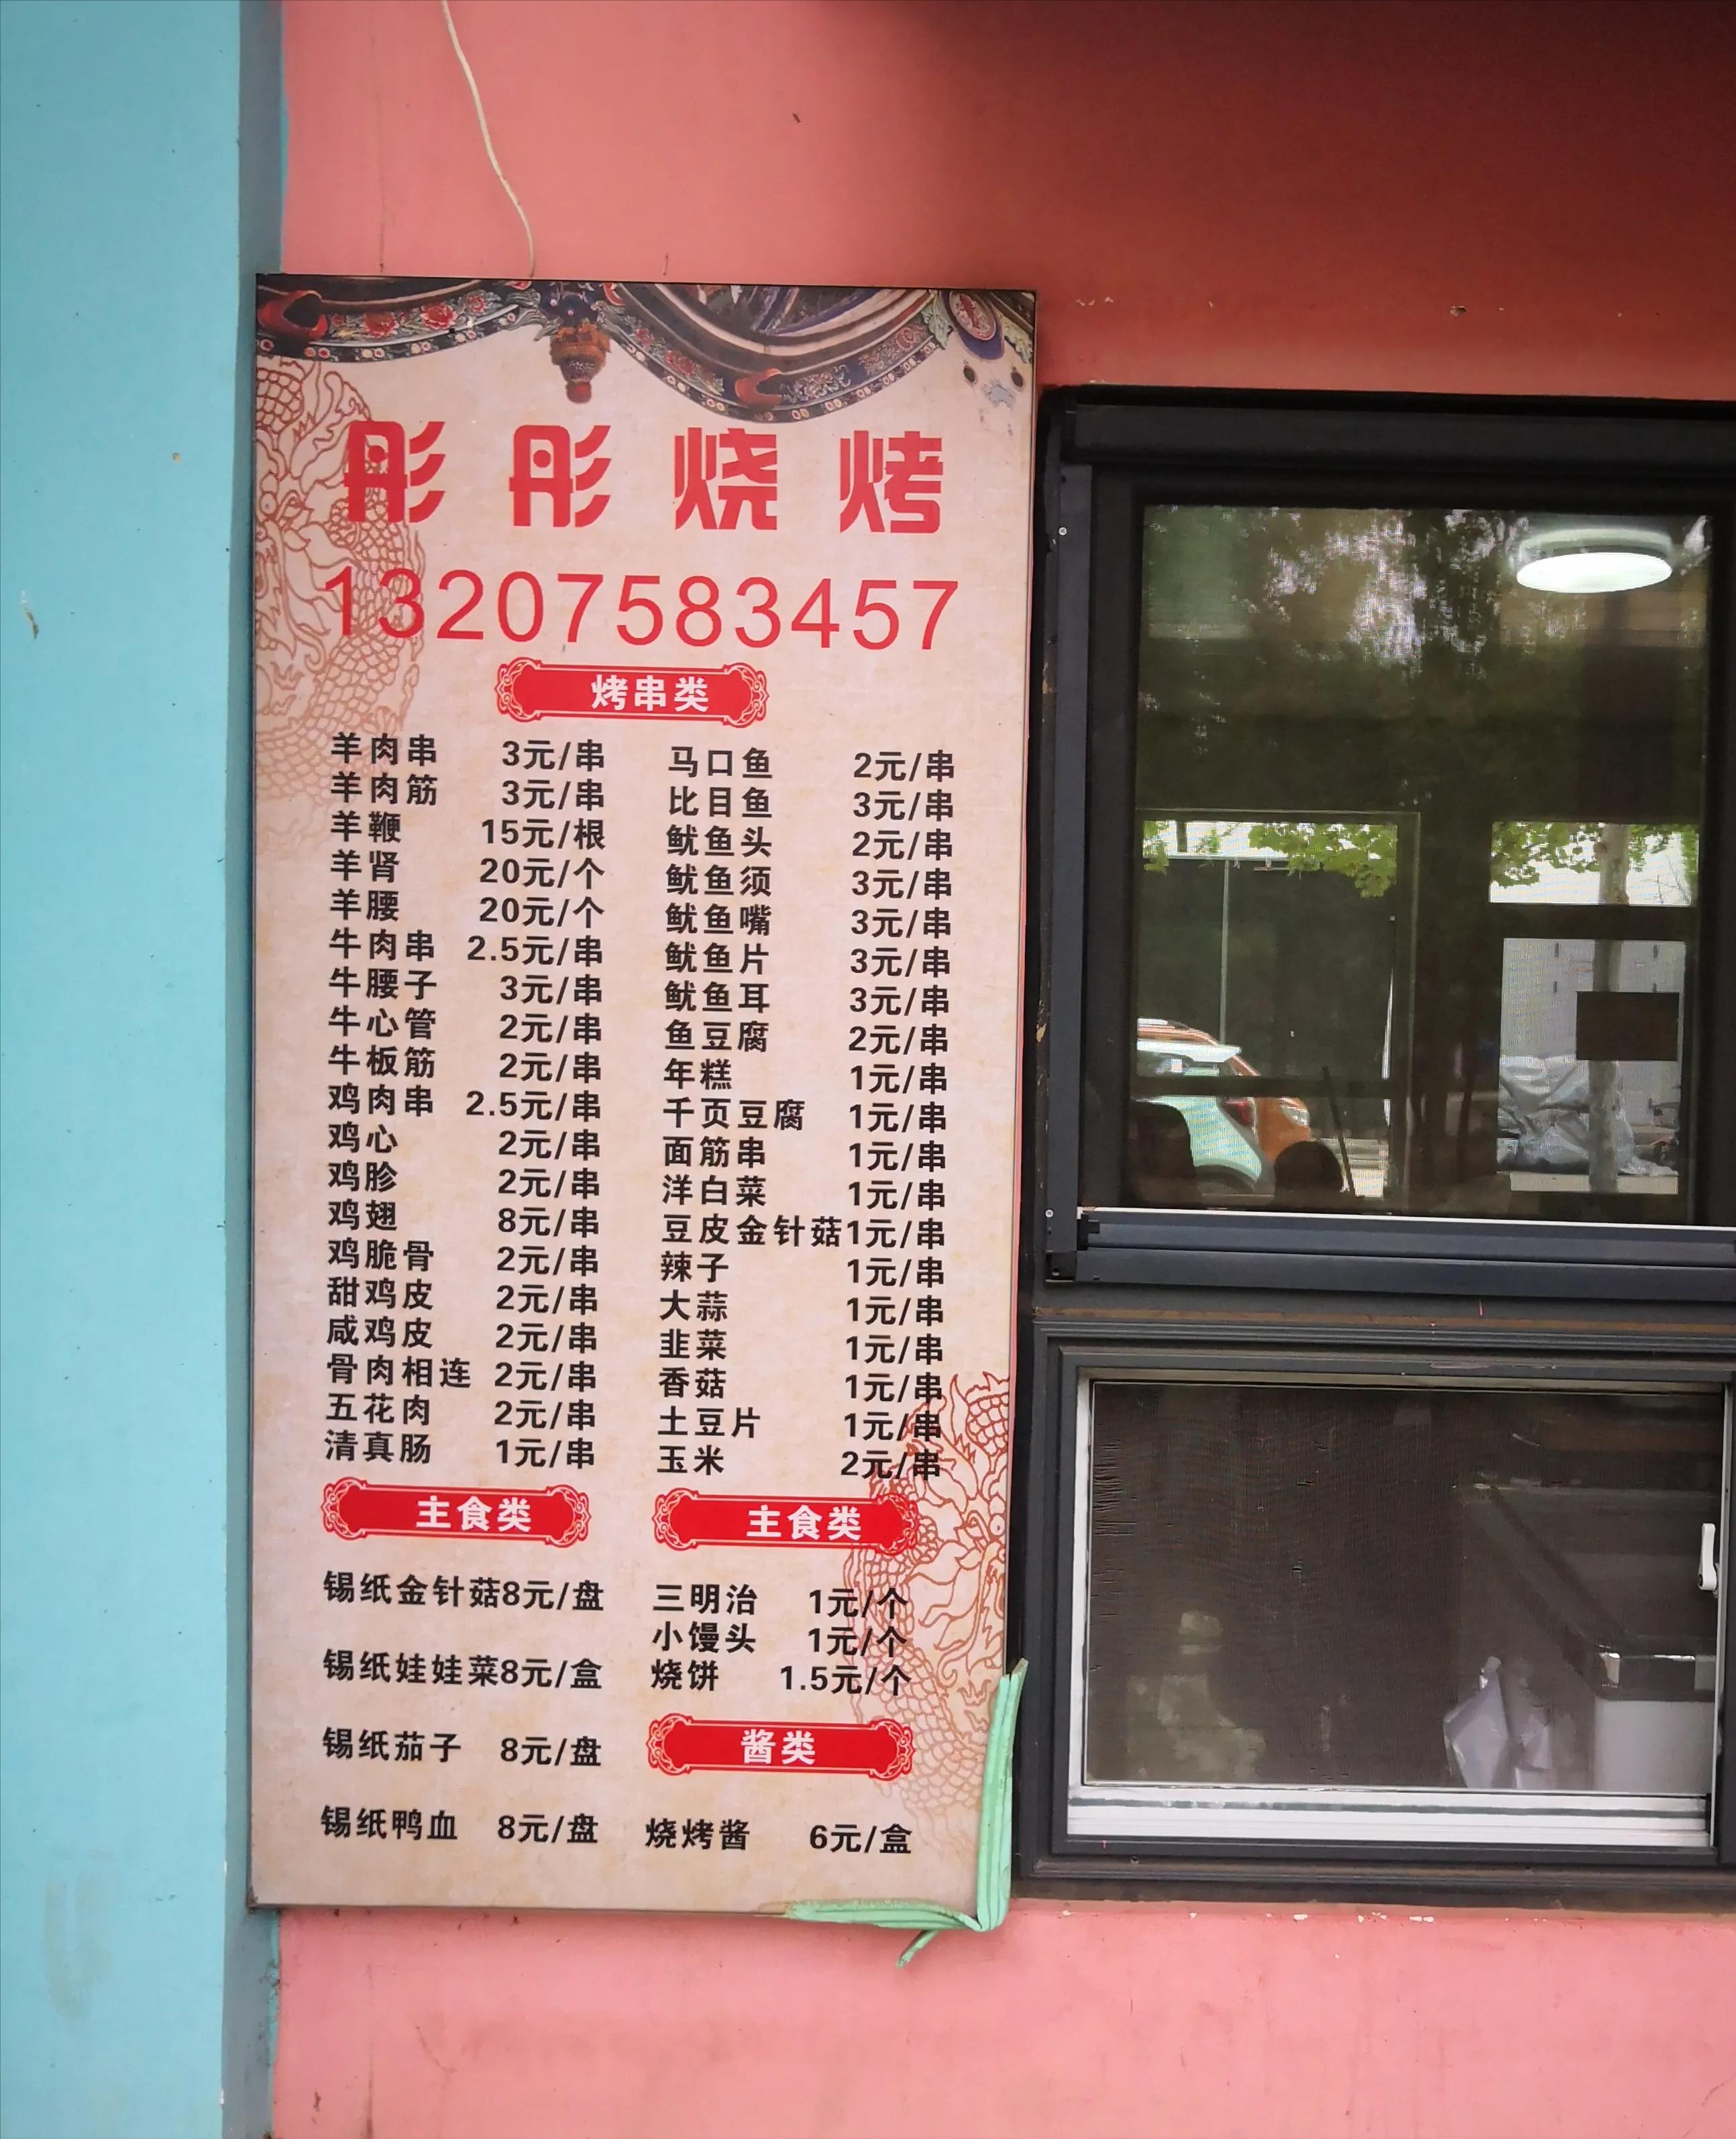 彤彤烧烤
13207583457
烤串类
羊肉串 3元/串
羊肉筋 3元/串
羊鞭 15元/根
羊肾 20元/个
羊腰 20元/个
牛肉串 2.5元/串
牛腰子 3元/串
牛心管 2元/串
牛板筋 2元/串
鸡肉串 2.5元/串
鸡心 2元/串
鸡胗 2元/串
鸡翅 8元/串
鸡脆骨 2元/串
甜鸡皮 2元/串
咸鸡皮 2元/串
骨肉相连 2元/串
五花肉 2元/串
清真肠 1元/串
马口鱼 2元/串
比目鱼 3元/串
鱿鱼头 2元/串
鱿鱼须 3元/串
鱿鱼嘴 3元/串
鱿鱼片 3元/串
鱿鱼耳 3元/串
鱼豆腐 2元/串
年糕 1元/串
千页豆腐 1元/串
面筋串 1元/串
洋白菜 1元/串
豆皮金针菇1元/串
辣子 1元/串
大蒜 1元/串
韭菜 1元/串
香菇 1元/串
土豆片 1元/串
玉米 2元/串
主食类
锡纸金针菇8元/盘
锡纸娃娃菜8元/盒
锡纸茄子 8元/盘
锡纸鸭血 8元/盘
主食类
三明治 1元/个
小馒头 1元/个
烧饼 1.5元/个
酱类
烧烤酱 6元/盒